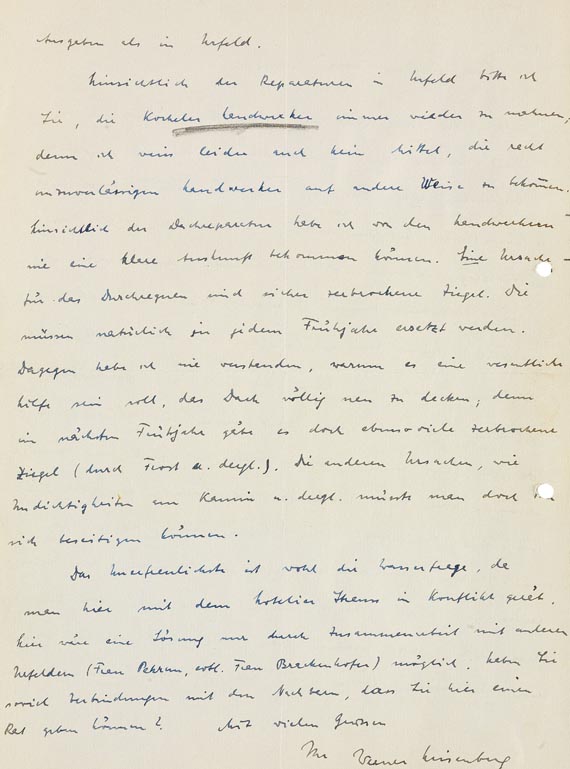 Ausgaben als in Urfeld.
Hinsichtlich der Reparaturen in Urfeld bitte ich
Sie, die Kocheler Handwerker immer wieder zu mahnen,
denn ich weiss leider auch kein Mittel, die recht
unzuverlässigen Handwerker auf andere Weise zu bekommen.
Hinsichtlich der Dachreparatur habe ich von den Handwerkern
nie eine klare Auskunft bekommen können. Eine Ursache
für das Durchregnen sind sicher zerbrochene Ziegel. Die
müssen natürlich in jedem Frühjahr ersetzt werden.
Dagegen habe ich nie verstanden, warum es eine wesentliche
Hilfe sein soll, das Dach völlig neu zu decken; denn
im nächsten Frühjahr gäbe es doch ebenso viele zerbrochene
Ziegel (durch Frost u. dergl.). Die anderen Ursachen, wie
Undichtigkeiten am Kamin u. dergl. müsste man doch
sich beseitigen können.
Das Unerfreulichste ist wohl die Wasserfrage, da
man hier mit dem Hotelier in Konflikt gerät.
Hier wäre eine Lösung nur durch Zusammenarbeit mit anderen
Urfeldern (Frau, evtl. Frau Brackenhofer) möglich. Haben Sie
soviel Verbindungen mit den Nachbarn, dass Sie hier einen
Rat geben können? Mit vielen Grüssen
Ihr Werner Heisenberg